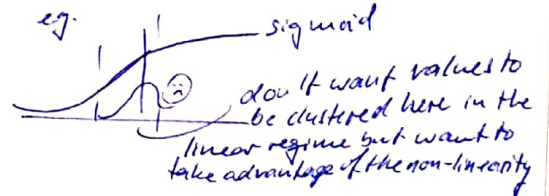 eg.
sigmoid
don't want values to
be clustered here in the
linear regime but want to
take advantage of the non-linearity